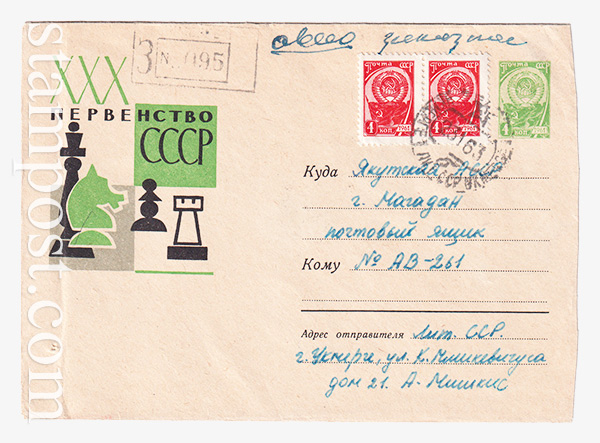 авиа заказное
З № 1195
XXX
ПЕРВЕНСТВО
СССР
ПОЧТА
4 КОП 1961
ПОЧТА
4 КОП 1961
ПОЧТА
Куда Якутская АССР
г. Магадан
почтовый ящик
Кому № АВ-261
Адрес отправителя Лит. ССР.
г. Укмерге, ул. К.
дом 21. А. Мишкис
stampost.com